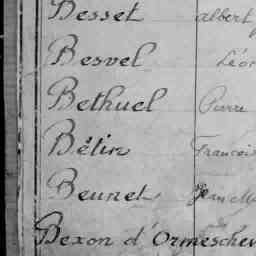 Besset Albert
Besvel Léo
Bethuel Pierre
Bétin Francois
Beunet Jean M
Bexon d'Ormeschev